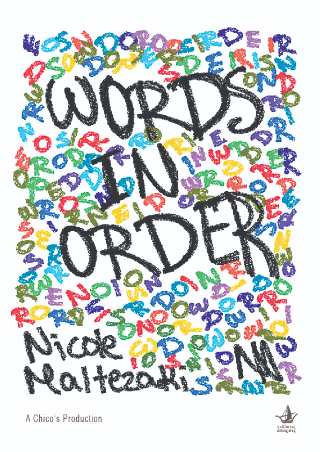 WORDS
IN
ORDER
Nicole
Maltezaki
A Chico's Production